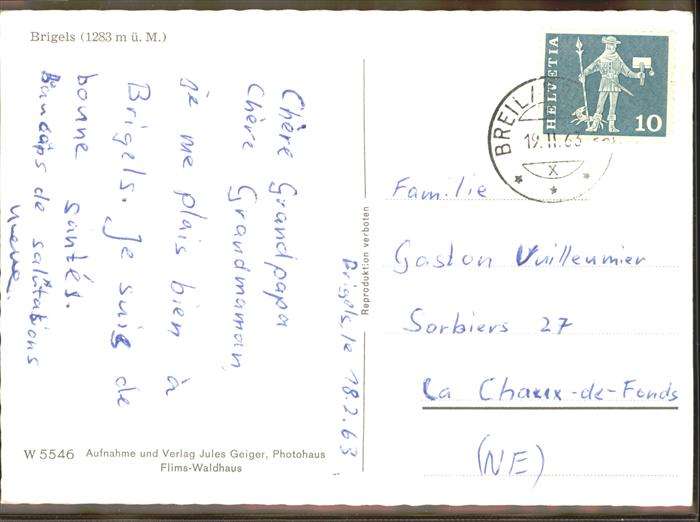 Brigels (1283 m ü. M.)
Brigels, le 18.2.63
Chère Grandpapa
Chère Grandmaman,
je me plais bien à
Brigels. Je suis de
bonne santés.
de salutations
HELVETIA
10
BREIL/
19.II.63
X
Familie
Gaston Vuilleumier
Sorbiers 27
La Chaux-de-Fonds
(NE)
Reproduktion verboten
W 5546 Aufnahme und Verlag Jules Geiger, Photohaus
Flims-Waldhaus